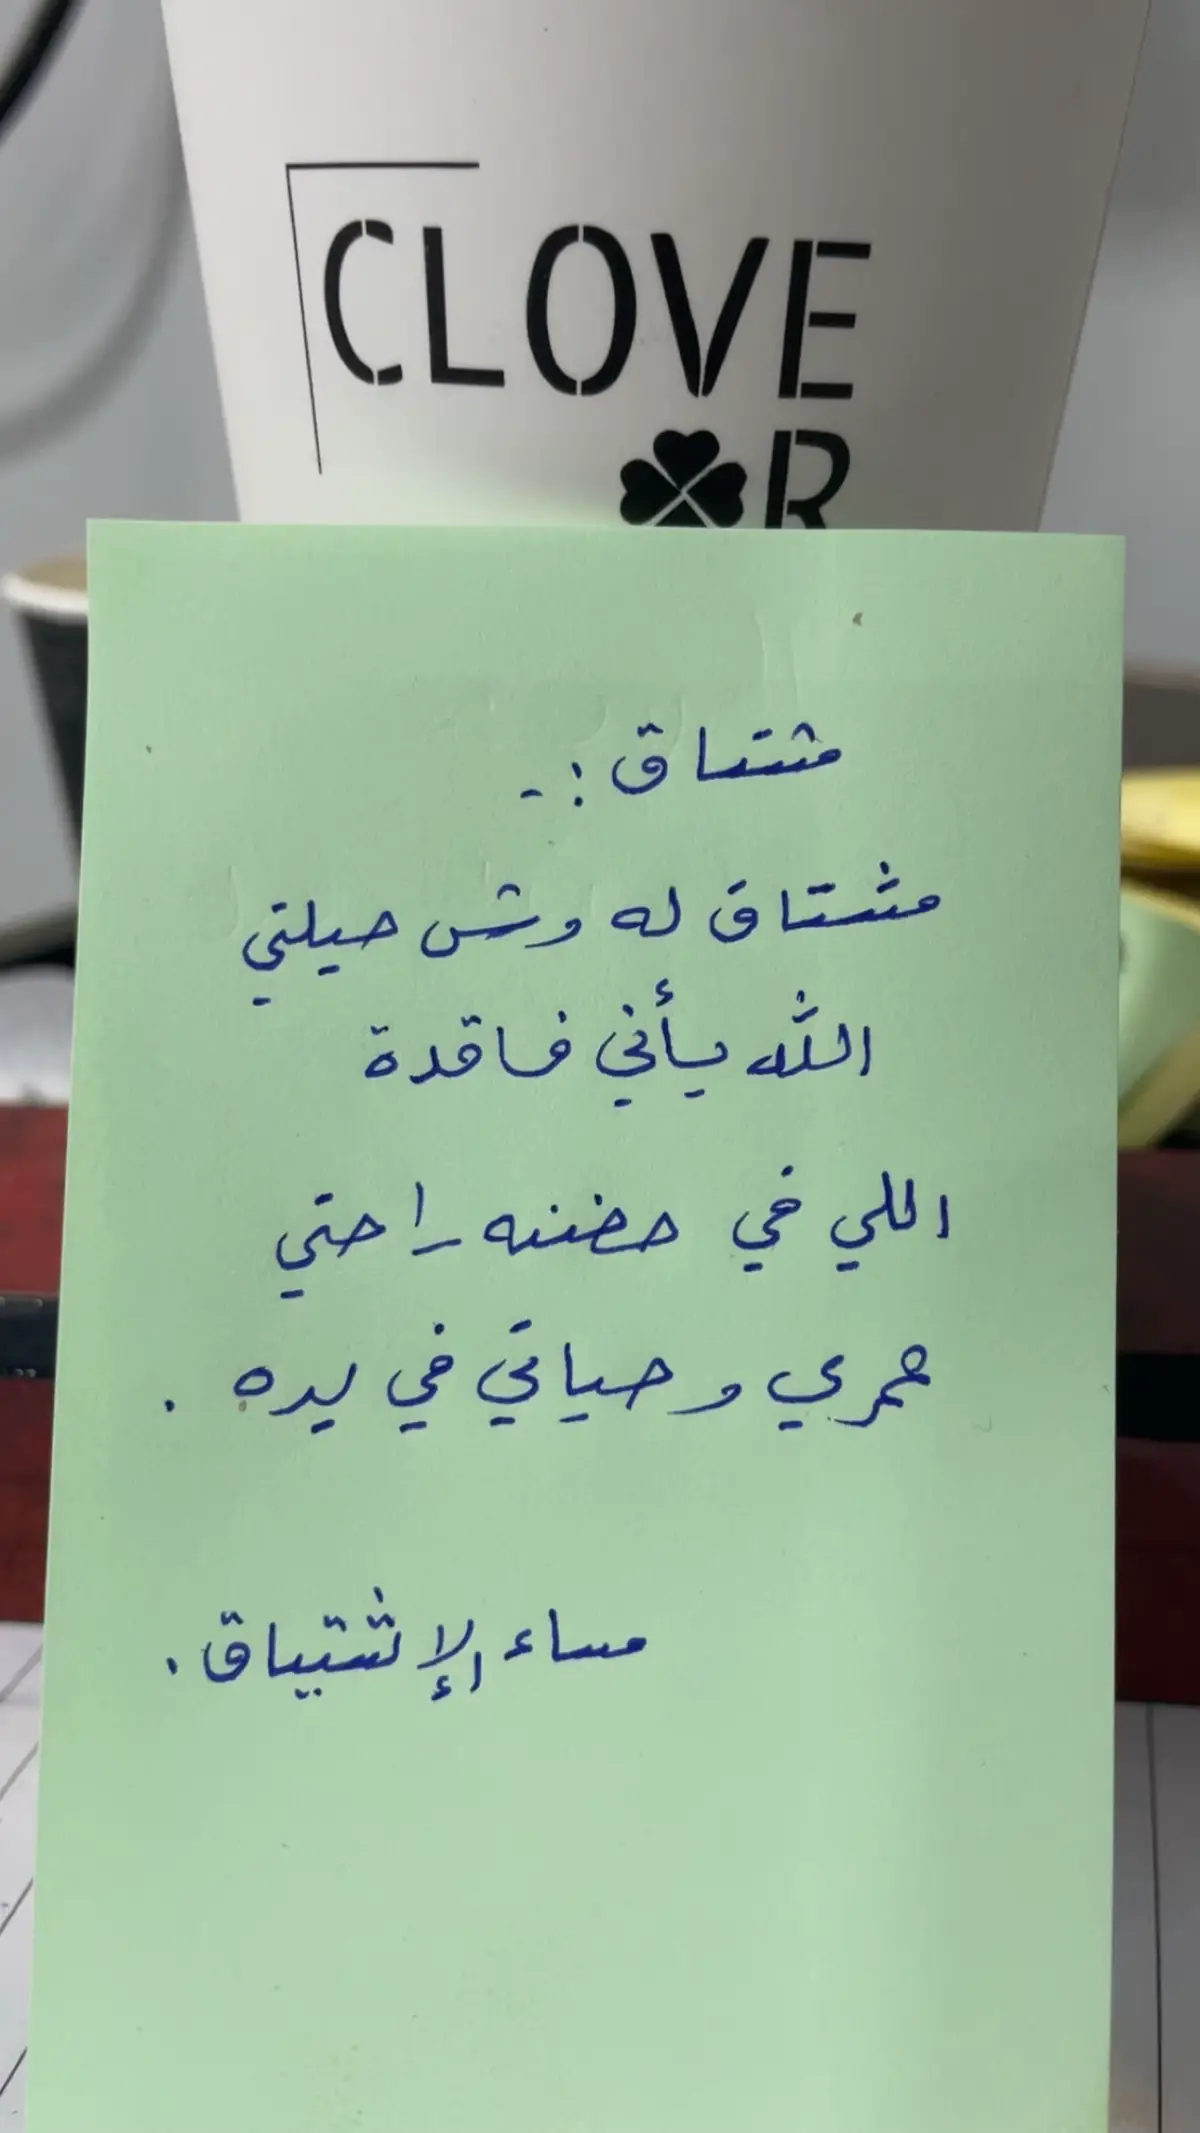 CLOVE
R
مشتاق :-
مشتاق له وش حيلتي
الله يأني فاقدة
اللي في حضنه راحتي
عمري وحياتي في يده .
مساء الإشتياق .